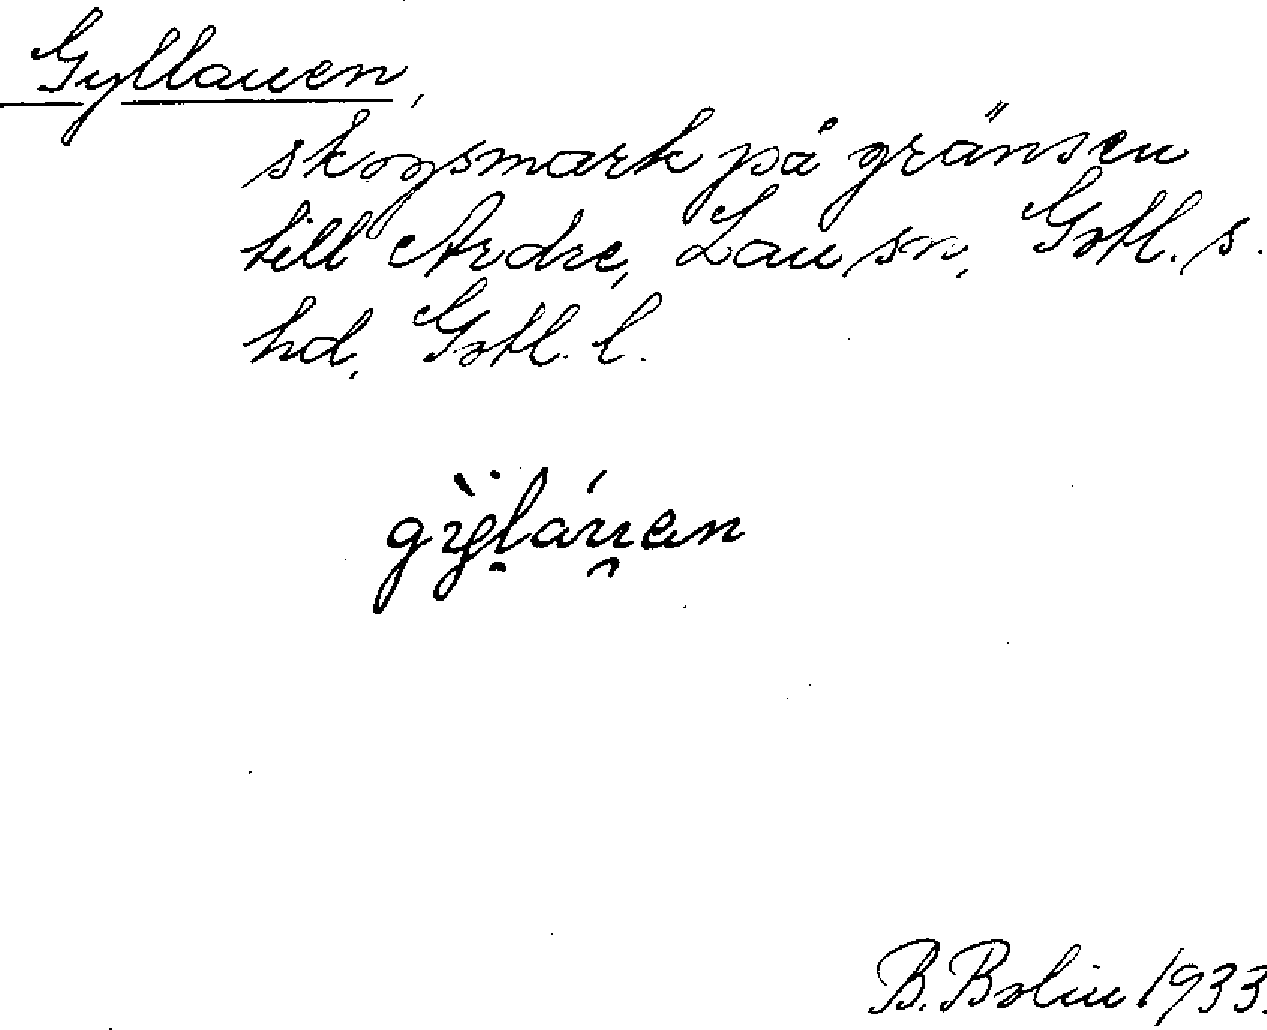 Gyllauen,
skogsmark på gränsen
till Ardre, Lau sn, Gotl. s.
hd, Gotl. l.
gÿ̀l̥áu̯en
B. Bolin 1933.